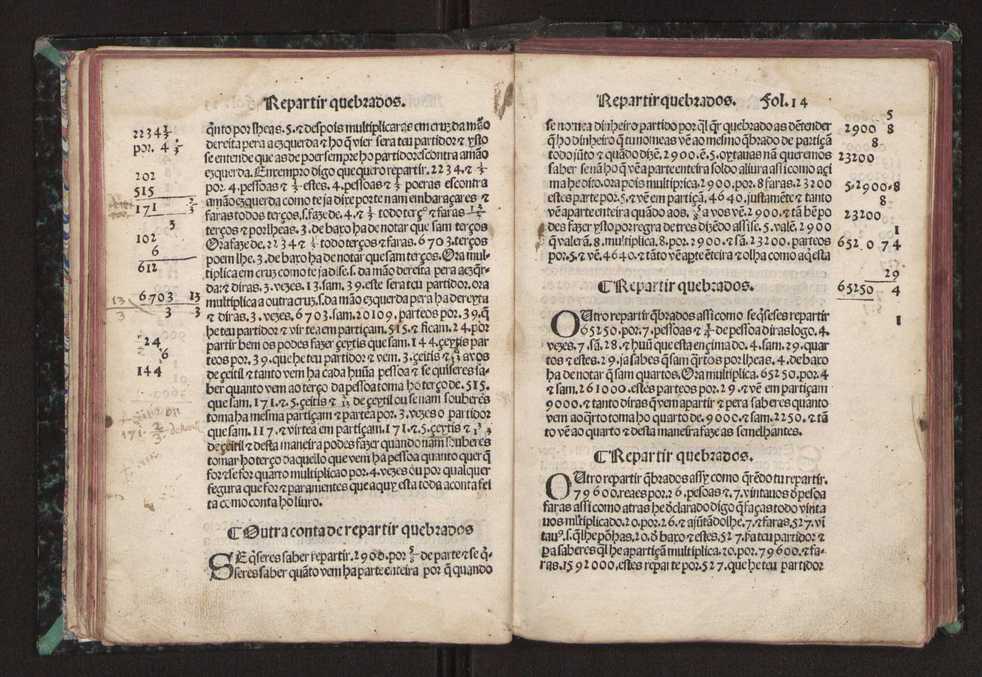 Repartir quebrados.
2234 2/3
por. 4 1/3
202
515
171 2/3
3
102
6
612
6703 13
3 3
24
6
144
q̃nto por lheas. 5. & despois multiplicaras em cruz da mão
dereita pera a ezquerda & ho q̃ vier sera teu partidor & ysto
se entende que as de poer sempre ho partidor escontra a mão
ezquerda. Enxempro digo que quero repartir. 2234. &
por. 4. pessoas & 1/3 estes. 4. pessoas & 1/3 poeras escontra
a mão ezquerda como te ja dixe porte nam embaraçares &
faras todos terços. s. faze de. 4. & 1/3 todo terços & faras
terços & por lheas. 3. de baxo ha de notar que sam terços
Ora faze de. 2234 & todo terços & faras. 6703. terços
poem lhe. 3. de baxo ha de notar que sam terços. Ora mul-
tiplica em cruz como te ja disse. s. da mão dereita pera a ezq̃r-
da: & diras. 3. vezes. 13. sam. 39. este sera teu partidor. ora
multiplica a outra cruz. s. da mão ezquerda pera ha dereyta
& diras. 3. vezes. 6703. sam. 20109. parteos por. 39. q̃
he teu partidor & vir tea em partiçam. 515. & ficam. 24. por
partir bem os podes fazer çeytis que sam. 144. çeytis par
teos por. 39. que he teu partidor & vem. 3. çeitis & avos
de çeitil & tanto vem ha cada huũa pessoa & se quiseres sa-
ber quanto vem ao terço da pessoa toma ho terço de. 515.
que sam. 171. & 5. çeitis & de çeytil ou se nam souberes
toma ha mesma partiçam & partea por. 3. vezes o partidor
que sam. 117. & virtea em partiçam. 171. & 5. çeytis &
de çeitil & desta maneira podes fazer quando nam souberes
tomar ho terço daquello que vem ha pessoa quanto quer q̃
for & se for quarto multiplicao por. 4. vezes ou por qualquer
fegura que for & paramentes que aquy esta toda a conta fei
ta como conta ho liuro.
Outra conta de repartir quebrados
SE q̃seres saber repartir. 2900. por 5/8 de parte & se q̃-
seres saber quãto vem ha parte enteira por q̃ quando
Repartir quebrados. Fol. 14
se nomea dinheiro partido por q̃l q̃r quebrado as dẽtender
q̃ ho dinheiro q̃ tu nomeas vẽ ao mesmo q̃brado de partiçã
todo jũto & quãdo dixẽ. 2900. ẽ. 5. oytauas nã queremos
saber senã ho q̃ vẽ a parte enteira soldo aliura assi como açi
ma he dito. ora pois multiprica. 2900. por. 8 faras. 23200
estes parte por. 5. & vẽ em partiçã. 4640. justamẽte & tanto
vẽ aparte enteira quãdo aos. 5/8 avos vẽ. 2900. & tã bẽ po
des fazer ysto por regra de tres dizẽdo assi se. 5. valẽ. 2900
q̃ valerã. 8. multiplica. 8. por. 2900. & sã. 23200. parteos
por. 5. & vẽ. 4640. & tãto vẽ aparte ẽteira & olha como aq̃ esta
5
2900 8
8
23200
5-2900-8
8
23200
1
652 0 7 4
29
65250 4
1
Repartir quebrados.
OUtro repartir q̃brados assi como se q̃seses repartir
65250. por. 7. pessoas & 1/4 de pessoa diras logo. 4.
vezes. 7. sã. 28. & huũ que esta ençima do. 4. sam. 29. quar
tos & estes. 29. ja sabes q̃ sam q̃rtos por lheas. 4. de baxo
ha de notar q̃ sam quartos. Ora multiplica. 65250. por. 4
& sam. 261000. estes parteos por. 29. & vẽ em partiçam
9000. & tanto diras q̃ vem apartir & pera saberes quanto
vem ao q̃rto toma ho quarto de. 9000. & sam. 2250. & tã
to vẽ ao quarto & desta maneira faze as semelhantes.
Repartir quebrados.
OUtro repartir q̃brados assy como q̃rẽdo tu repartir.
79600. reaes por. 26. pesoas & 7. vintauos õ pesoa
faras assi como atras he õclarado digo q̃ faças todo vinta
uos mltiplicado. 20. por. 26. & ajũtãdolhe. 7. & faras. 527. vĩ
tauos. s. q̃ lhe põhas. 20. õ baxo & estes. 527. sã teu partidor &
pa saberes q̃l he apartiçã multiplica. 20. por. 79600. & fa-
ras. 1592000, estes reparte por. 527. que he teu partidor